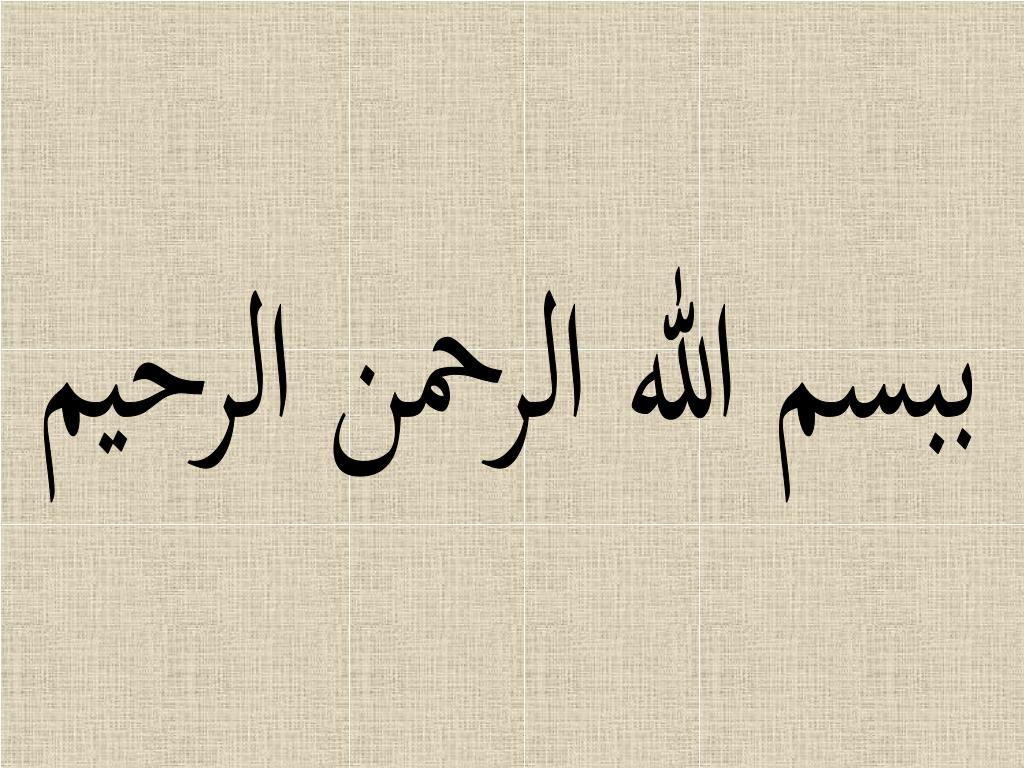 ببسم الله الرحمن الرحيم